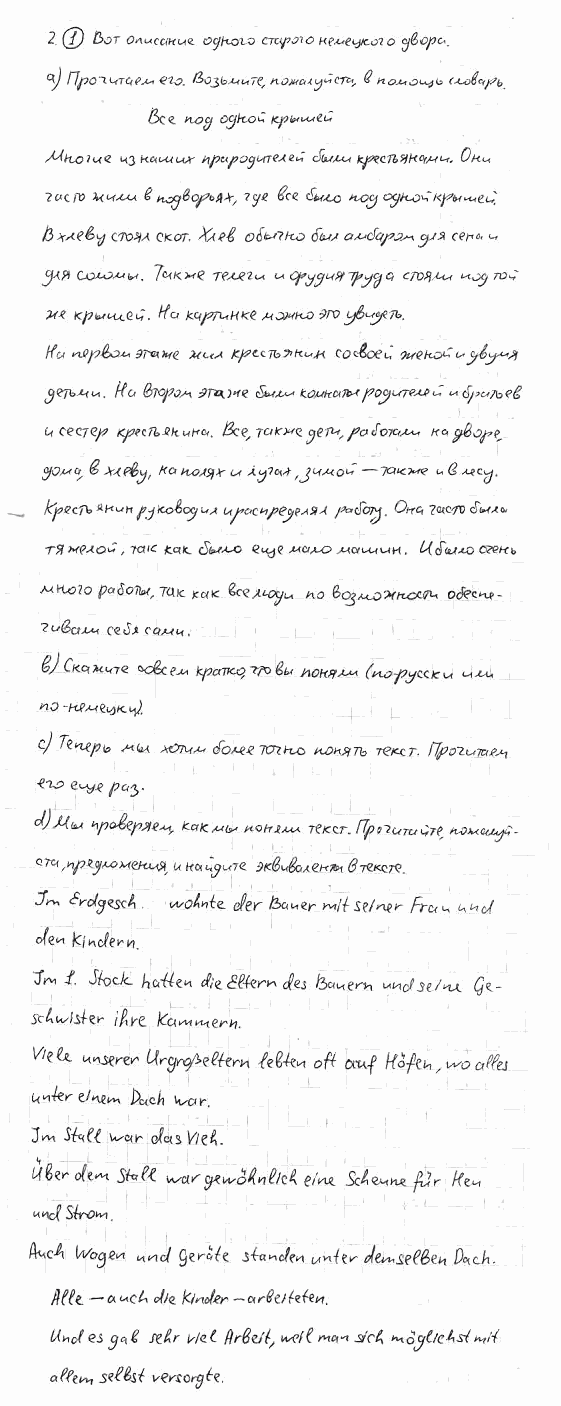 2. ① Вот описание одного старого немецкого двора.
а) Прочитаем его. Возьмите, пожалуйста, в помощь словарь.
Все под одной крышей
Многие из наших прародителей были крестьянами. Они
часто жили в подворьях, где все было под одной крышей.
В хлеву стоял скот. Хлев обычно был амбаром для сена и
для соломы. Также телеги и орудия труда стояли под той
же крышей. На картинке можно это увидеть.
На первом этаже жил крестьянин со своей женой и двумя
детьми. На втором этаже были комнаты родителей и братьев
и сестер крестьянина. Все, также дети, работали на дворе,
дома, в хлеву, на полях и лугах, зимой – также и в лесу.
Крестьянин руководил и распределял работу. Она часто была
тяжелой, так как было еще мало машин. И было очень
много работы, так как все люди по возможности обеспе-
чивали себя сами.
b) Скажите совсем кратко, что вы поняли (по-русски или
по-немецки).
c) Теперь мы хотим более точно понять текст. Прочитаем
его еще раз.
d) Мы проверяем, как мы поняли текст. Прочитайте, пожалуй-
ста, предложения, и найдите эквиваленты в тексте.
Im Erdgesch. wohnte der Bauer mit seiner Frau und
den Kindern.
Im 1. Stock hatten die Eltern des Bauern und seine Ge-
schwister ihre Kammern.
Viele unserer Urgroßeltern lebten oft auf Höfen, wo alles
unter einem Dach war.
Im Stall war das Vieh.
Über dem Stall war gewöhnlich eine Scheune für Heu
und Strom.
Auch Wogen und Geräte standen unter demselben Dach.
Alle – auch die Kinder – arbeiteten.
Und es gab sehr viel Arbeit, weil man sich möglichst mit
allem selbst versorgte.